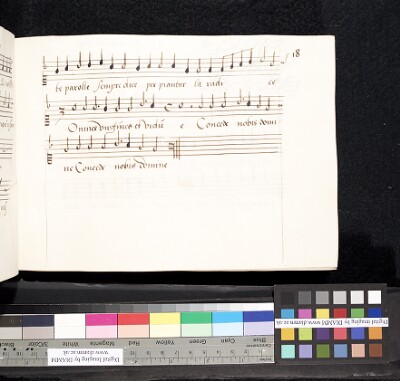 18
te parolle sempre dice per piantar la radi ce
Omnes virgines et vidue e Concede nobis domi
ne Concede nobis domine
Digital Imaging by DIAMM
www.diamm.ac.uk
Black 3/Color White Magenta Red Yellow Green Cyan Blue
Digital Imaging by DIAMM
www.diamm.ac.uk